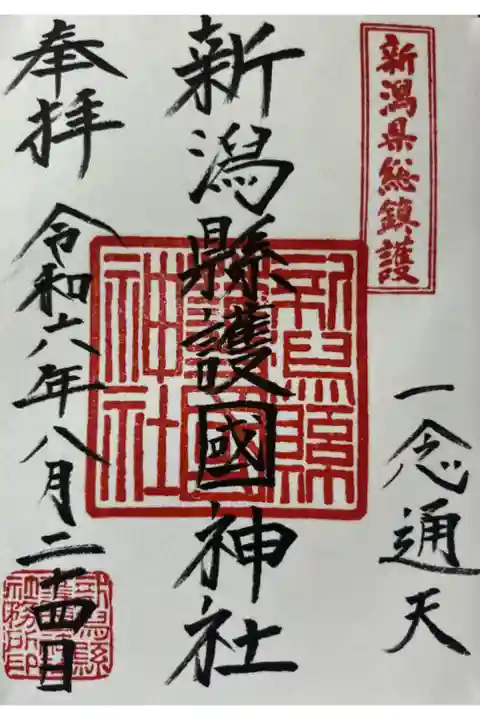 新潟県総鎮護
一念通天
新潟縣護國神社
新潟縣護國神社
奉拝
令和六年八月二十四日
新潟縣護國神社社務所印